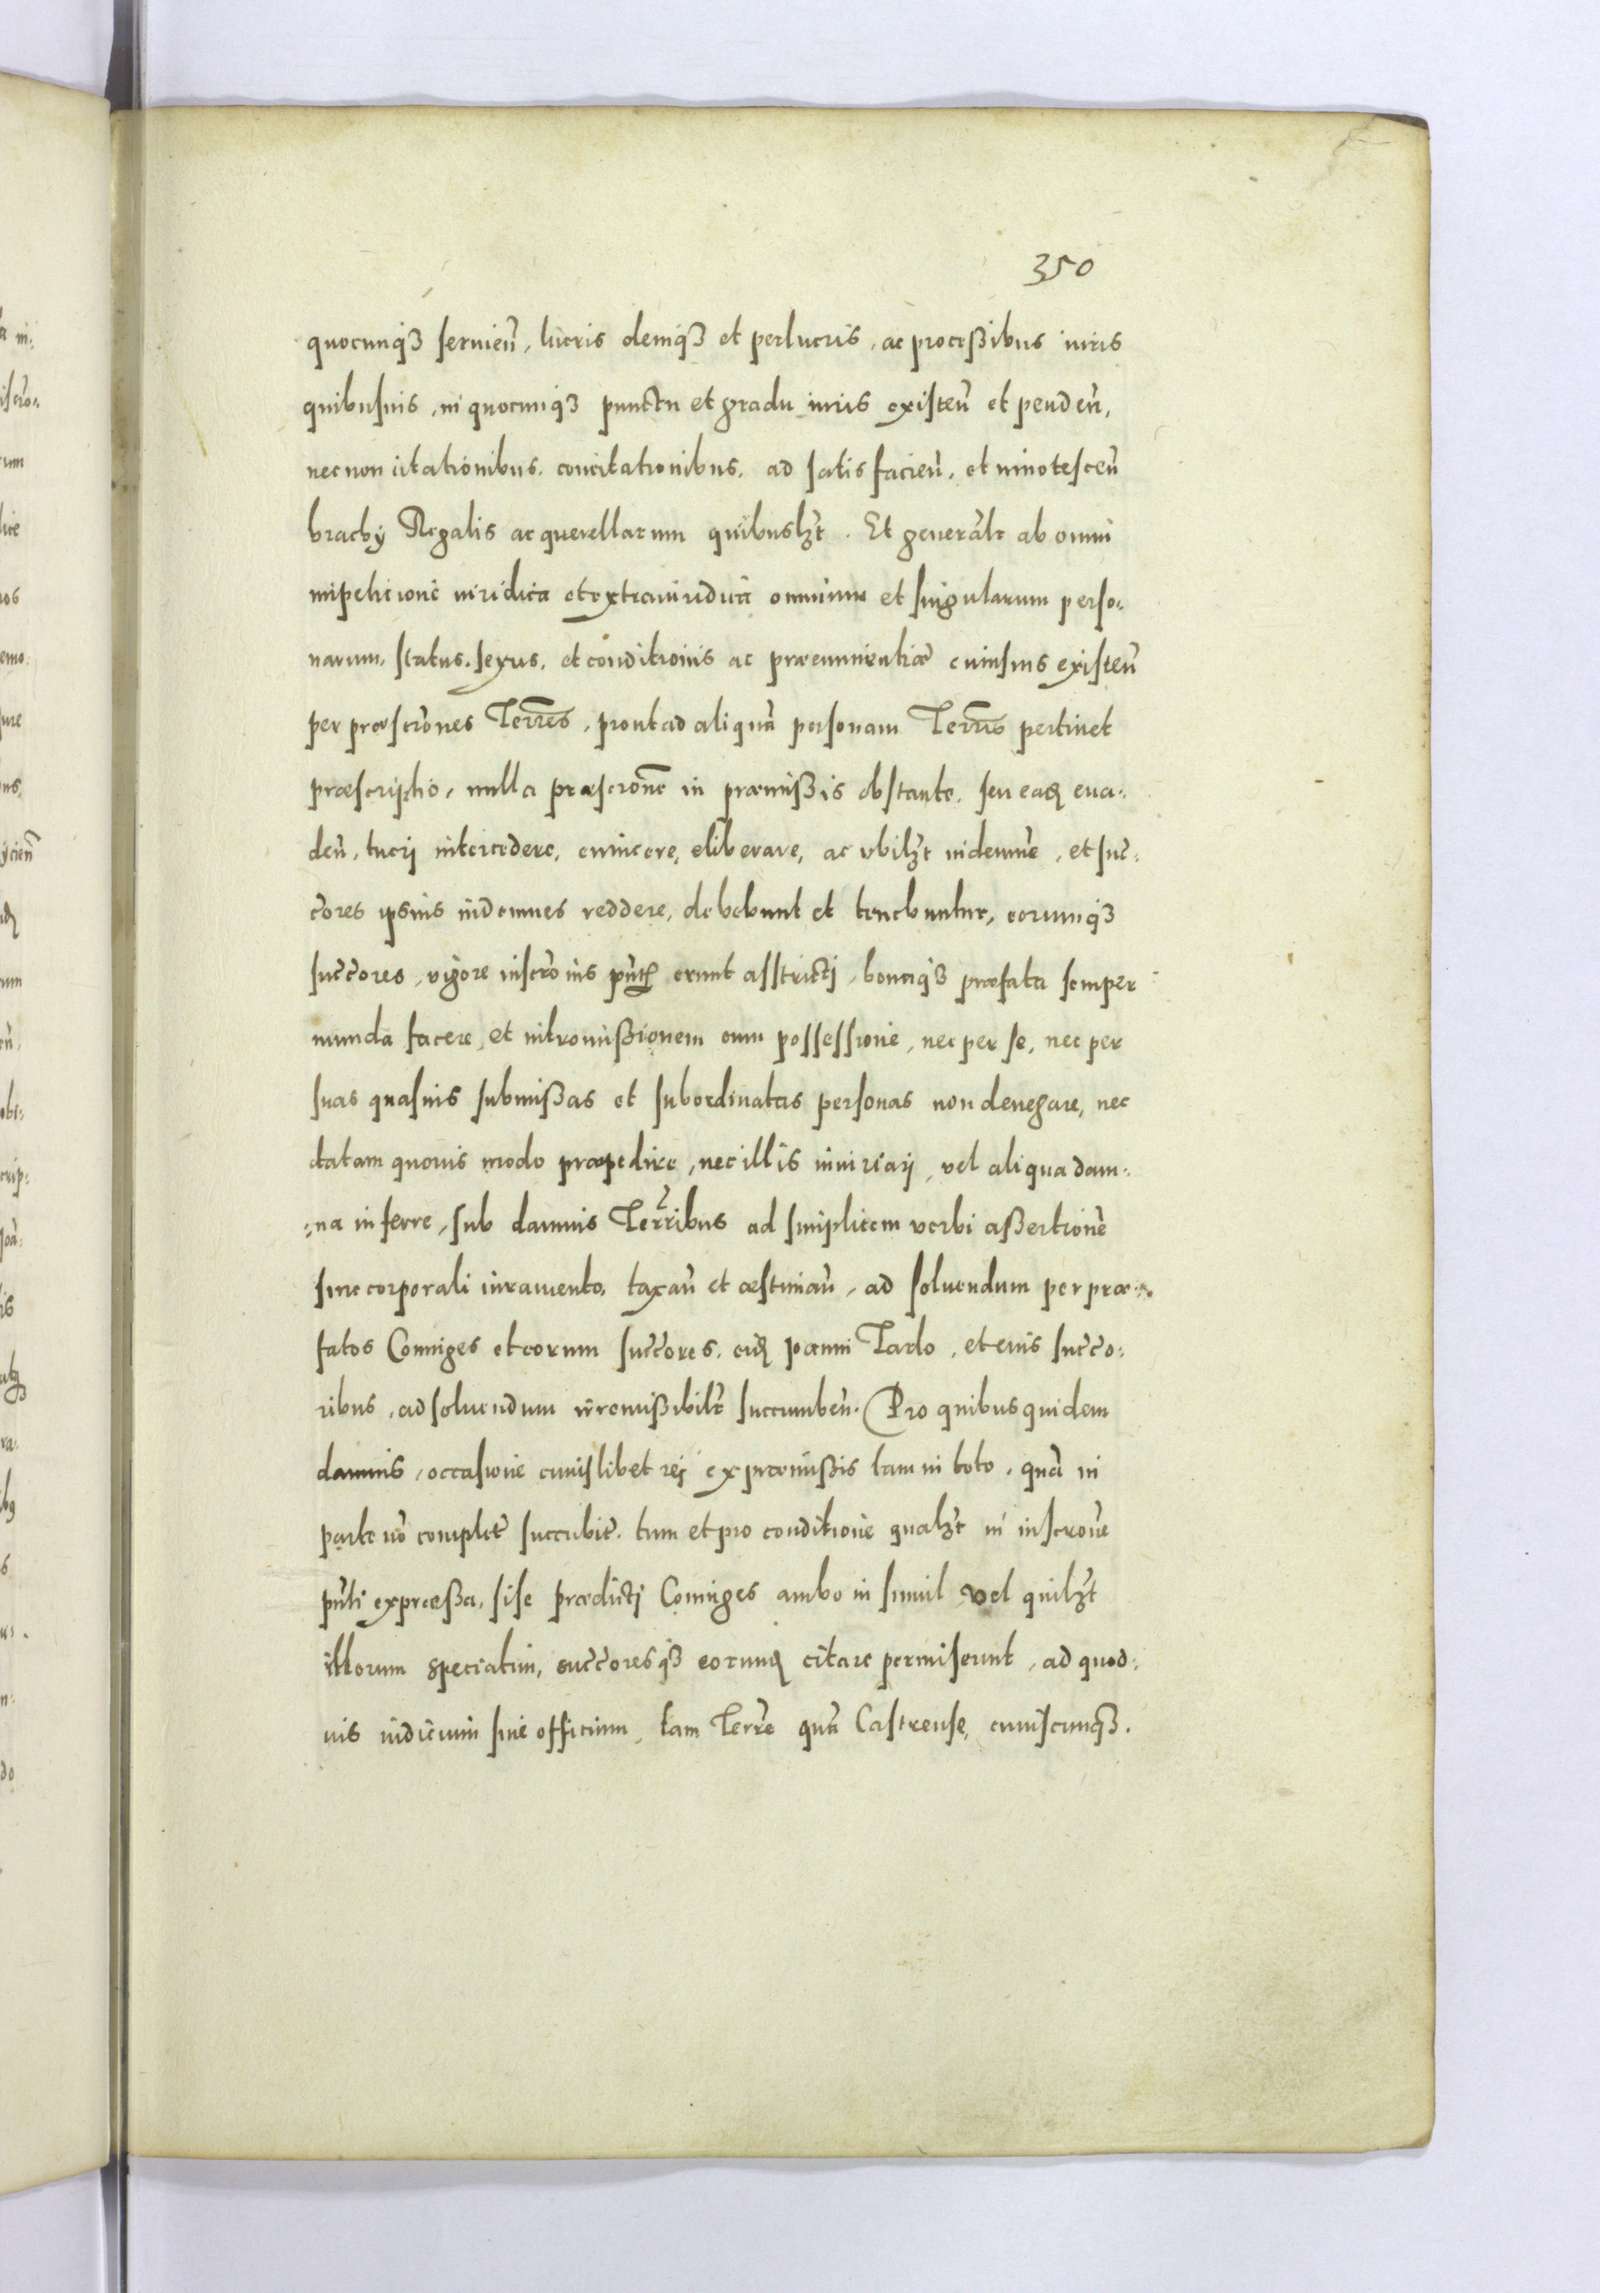 350
quocunqꝫ seruieñ, lucris deniqꝫ et perlucris, ac proceßibus iuris
quibusuis, in quocunqꝫ punctu et gradu iuris existeñ et pendeñ,
necnon citationibus, concitationibus, ad satisfacieñ, et innotesceñ
brachÿ Regalis ac querellarum quibuslꝫt. Et generalr̃ ab omni
impetitione iuridica et extraiuridica omnium et singularum perso-
narum, status, sexus, et conditionis ac præeminentiæ cuiusuis existeñ
per præscrõnes Terrẽs, prout ad aliquã personam Terrĩs pertinet
præscriptio, nulla præscrõne in præmißis obstante, seu eaꝝ eua-
deñ, tueri intercedere, euincere, eliberare, ac vbilꝫt indemnẽ, et suc̃-
c̃ores ipsius indemnes reddere, debebunt et tenebuntur, eorumqꝫ
succ̃ores, vigore inscrõnis pñtꝭ erunt asstricti, bonaqꝫ præfata semper
munda facere, et intromißionem cum possessione, nec per se, nec per
suas quasuis submißas et subordinatas personas non denegare, nec
datam quouis modo præpedire, nec illis iniuriari, vel aliqua dam-
-na inferre, sub damnis Terr̃ribus ad simplicem verbi aßertionẽ
sine corporali iuramento, taxañ et æstimañ, ad soluendum per præ-
fatos Coniuges et eorum succ̃ores, eiđ Joanni Tarlo, et eius succ̃o-
ribus, ad soluendum irremißibilr̃ succumbeñ. Pro quibus quidem
damnis, occasione cuiuslibet rei ex præmißis tam in toto, quã in
parte nõ completẽ succubitẽ, tum et pro conditione qualꝫt in inscrõne
pñti expreßa, sise prædicti Coniuges ambo in simul vel quilꝫt
illorum speciatim, succ̃oresqꝫ eorunđ citare permiserunt, ad quod-
uis iudicium siue officium, tam Terr̃e quã Castrense, cuiuscunqꝫ.